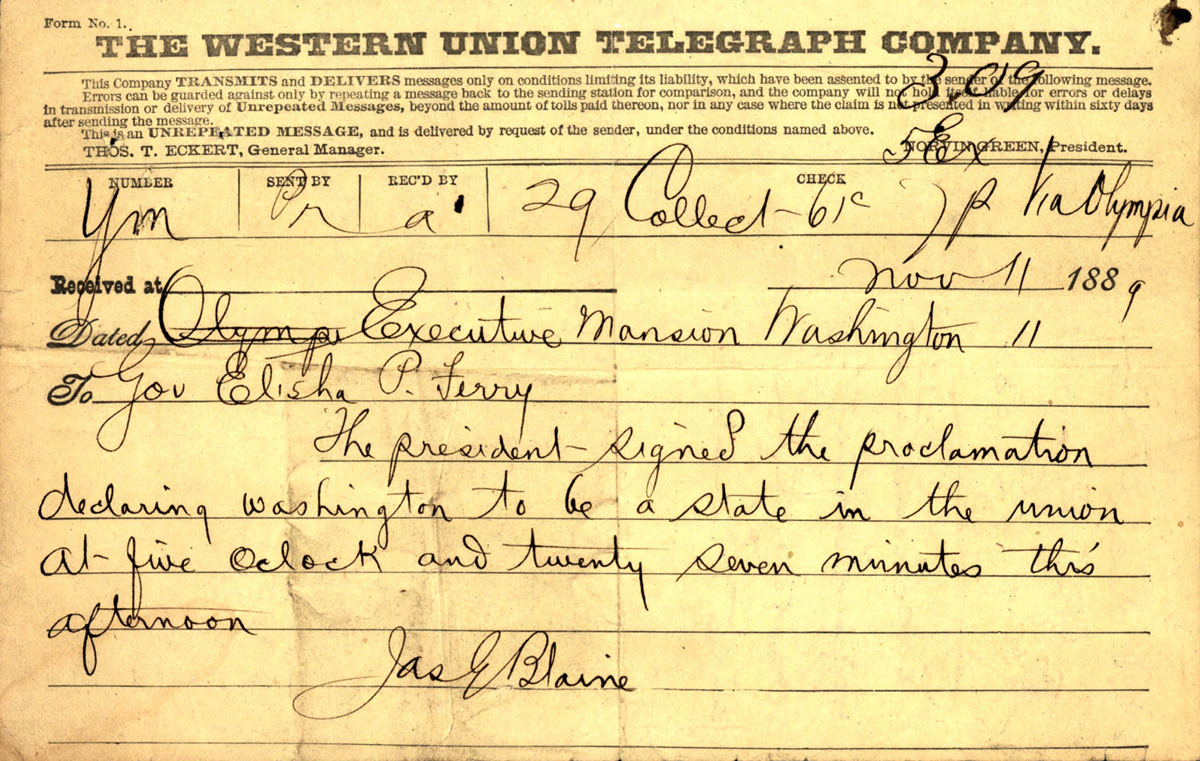 Form No. 1.
THE WESTERN UNION TELEGRAPH COMPANY.
This Company TRANSMITS and DELIVERS messages only on conditions limiting its liability, which have been assented to by the sender of the following message.
Errors can be guarded against only by repeating a message back to the sending station for comparison, and the company will not hold itself liable for errors or delays
in transmission or delivery of Unrepeated Messages, beyond the amount of tolls paid thereon, nor in any case where the claim is not presented in writing within sixty days
after sending the message.
This is an UNREPEATED MESSAGE, and is delivered by request of the sender, under the conditions named above.
THOS. T. ECKERT, General Manager. NORVIN GREEN, President.
309
NUMBER SENT BY REC'D BY CHECK
Ym Pr a 29 Collect 61c Via Olympia
Received at Nov 11 1889
Dated Olympi Executive Mansion Washington 11
To Gov Elisha P. Ferry
The president signed the proclamation
declaring washington to be a state in the union
at five oclock and twenty seven minutes this
afternoon
Jas G Blaine